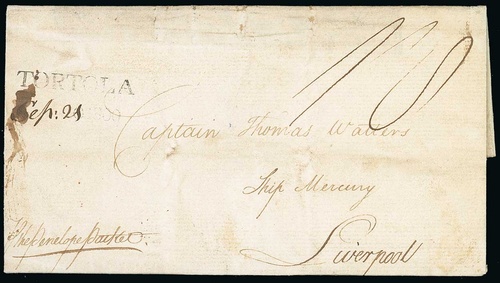 TORTOLA
Sep: 21 1800
Captain Thomas Watters
Ship Mercury
Liverpool
The Penelope Packet.